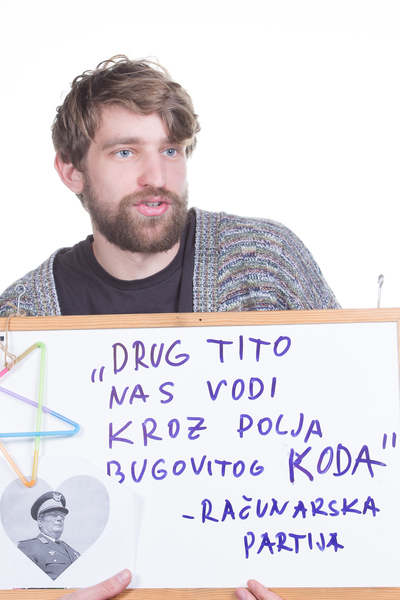 „DRUG TITO
NAS VODI
KROZ POLJA
BUGOVITOG KODA"
-RAČUNARSKA
PARTIJA